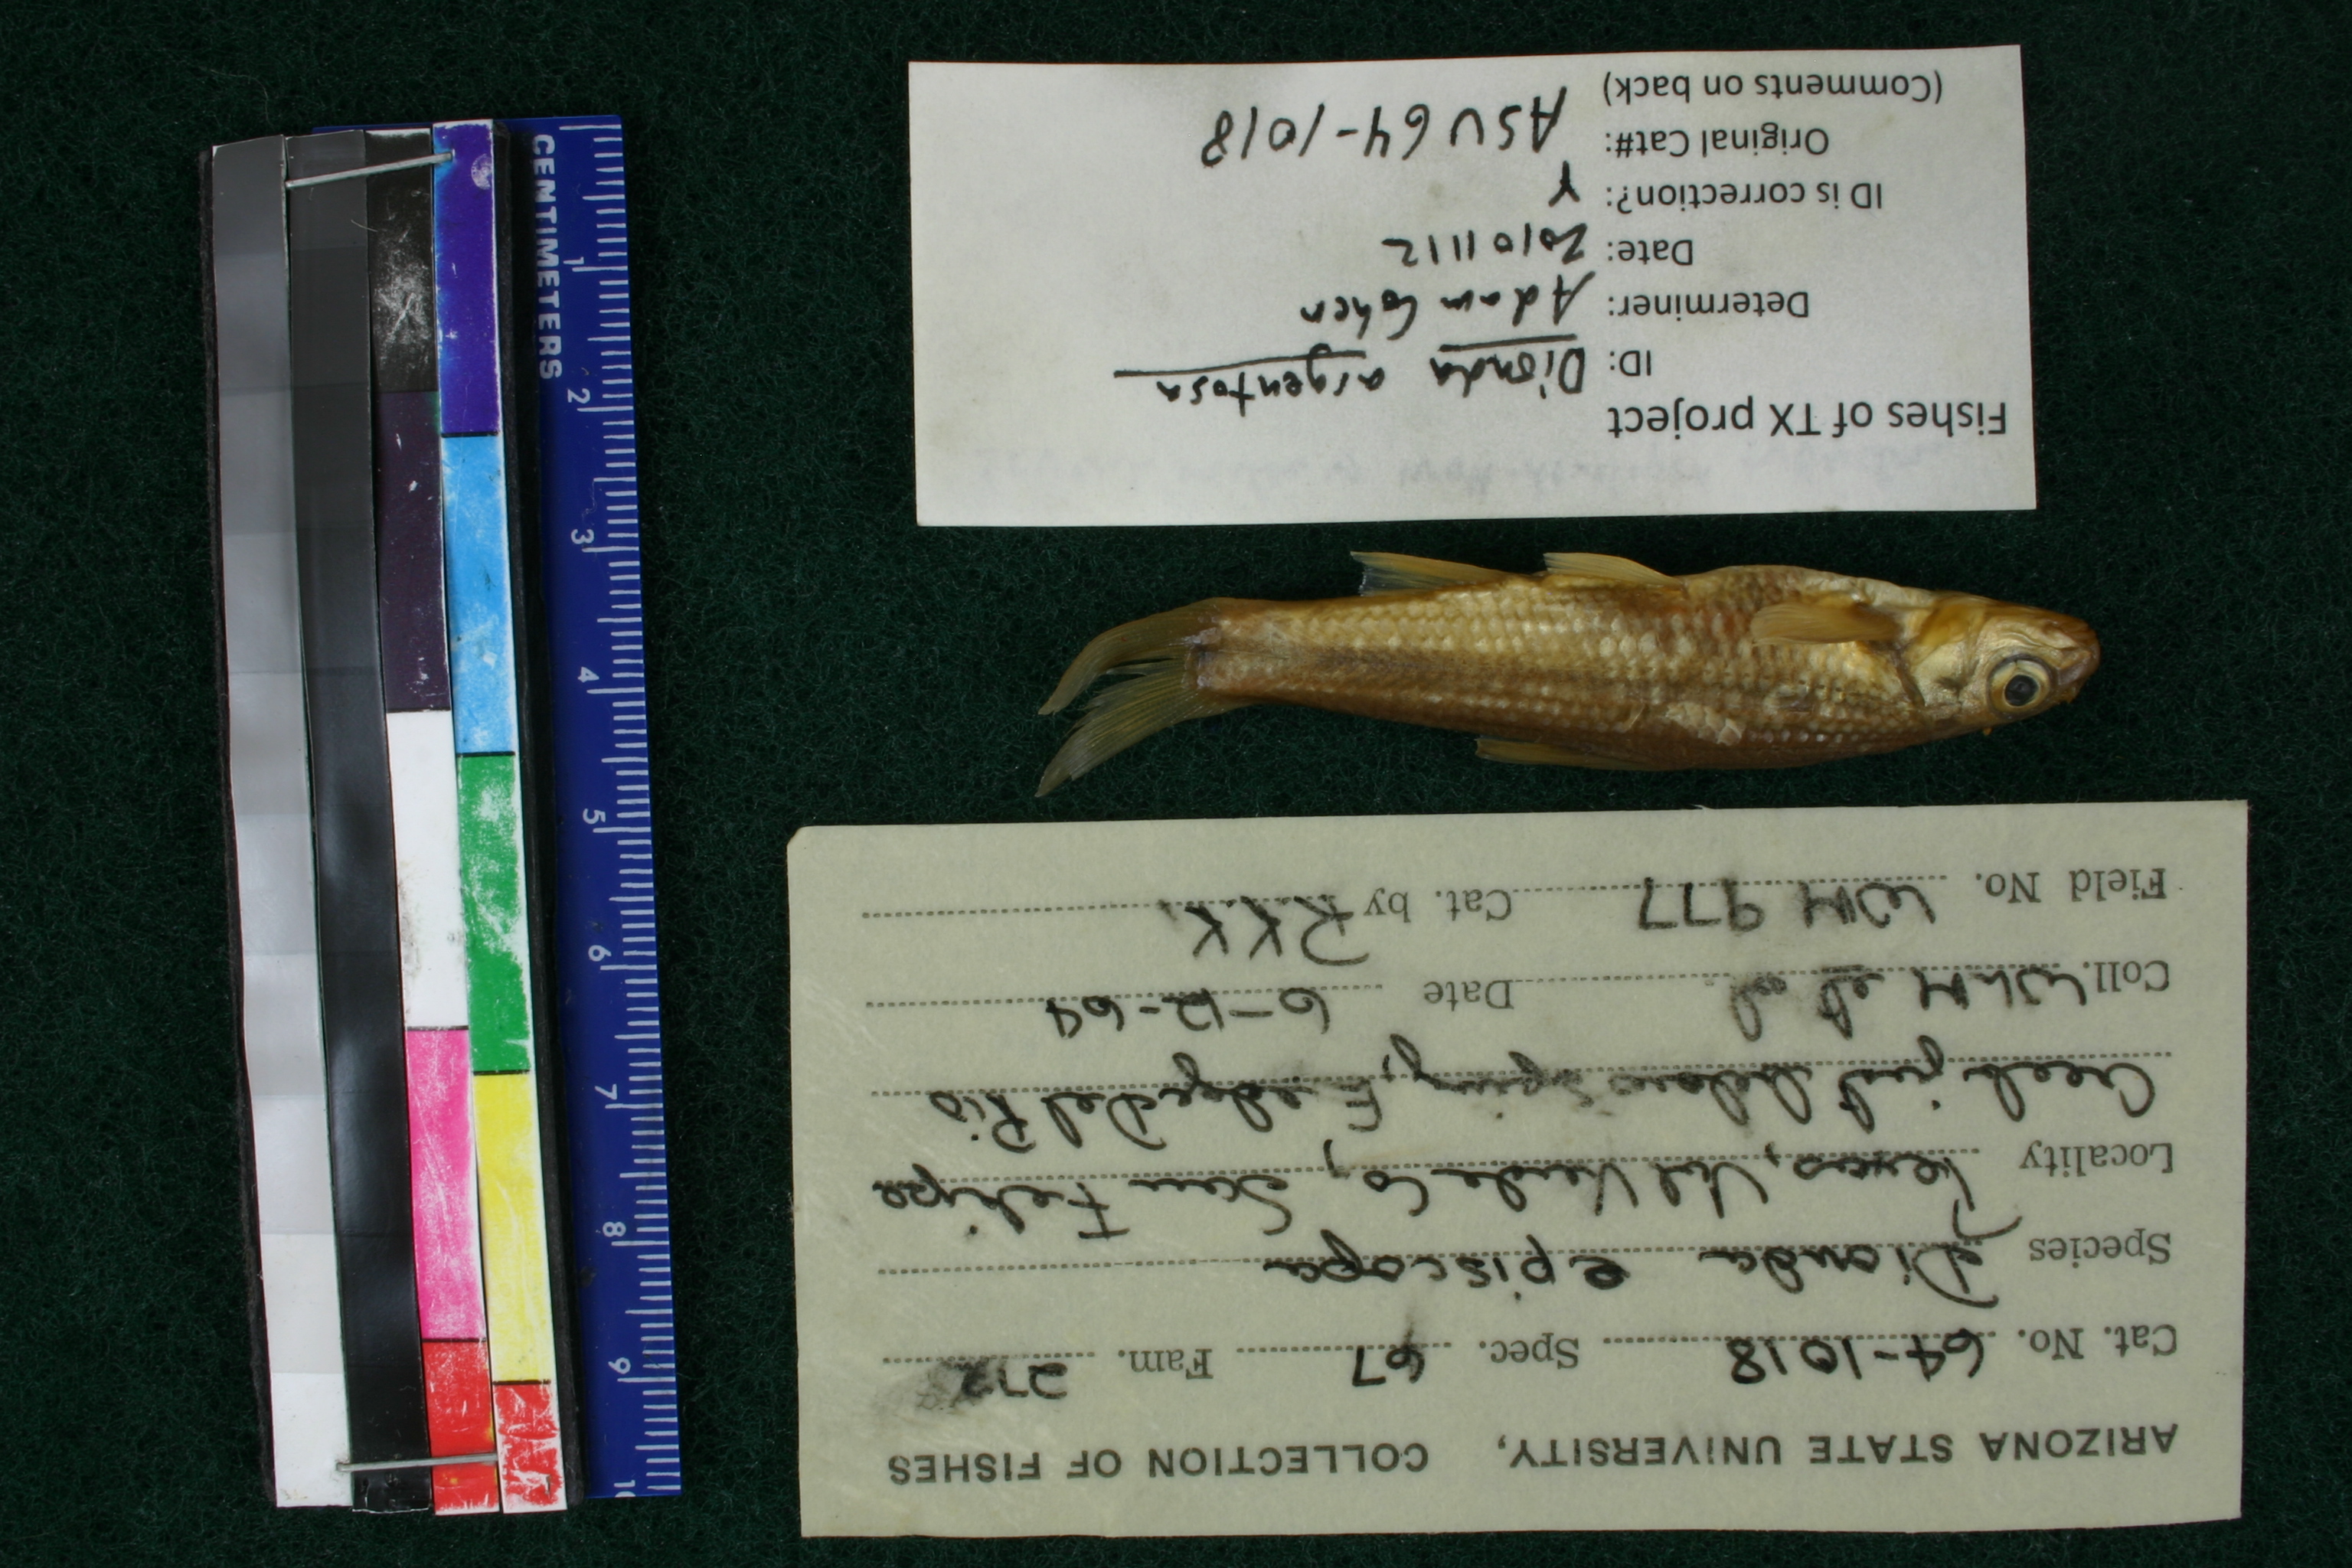 Fishes of TX project
ID: Dionda argentosa
Determiner: Adam Cohen
Date: 20101112
ID is correction?: Y
Original Cat#: ASU 64-1018
(Comments on back)
ARIZONA STATE UNIVERSITY, COLLECTION OF FISHES
Cat. No. 64-1018 Spec. 67 Fam. 272
Species Dionda episcopa
Locality Texas, Val Verde Co, San Felipe
Creek just below Spring, E edge Del Rio
Coll. WLM et al Date 6-12-64
Field No. WM 977 Cat. by RKK.
CENTIMETERS
1
2
3
4
5
6
7
8
9